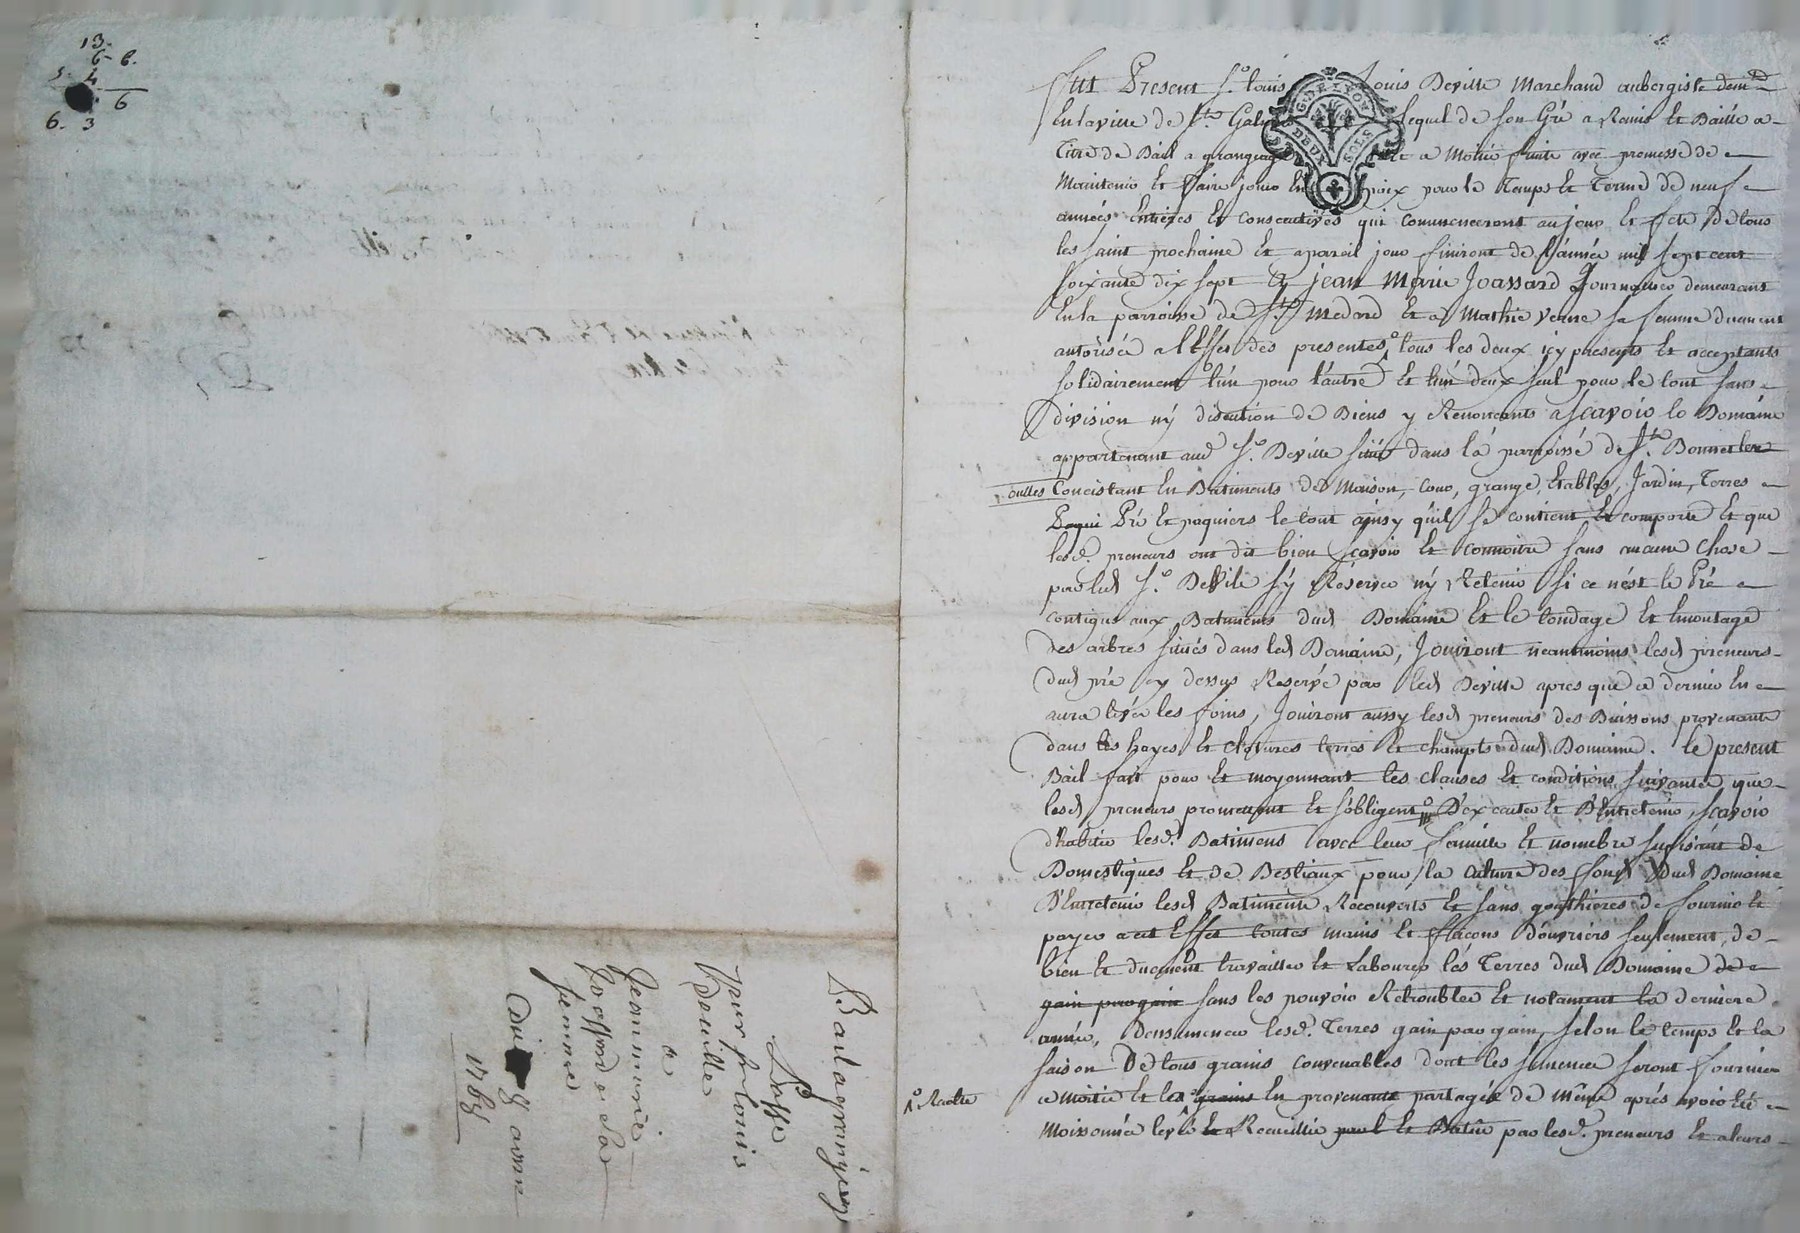 13.
6- 6.
5. 4
6
6. 3
Bail a grangeage
Passé
par sr Louis
Deville
à
Jean marie
Joassard et sa
femme
Du 9 avril
1768
Fut Present Sr. Louis Louis Deville Marchand aubergiste demt
En la ville de St. Galmier lequel de son Gré a Remis Et Baillé a
Titre de Bail a grangeage a Moitié fruits avec promesse de
Maintenir Et faire jouir En paix pour le Temps Et Terme de neuf
années Entieres Et Consecutives qui Commenceront au jour Et fete De tous
les saint prochaine Et a pareil jour finiront de l'année mil sept cent
soixante dix sept à jean Marie Joassard Journalier demeurant
En la parroisse de St. Medard Et a Mathie Verne sa femme dument
autorisée a l'Effet des presentes tous les deux icy presents Et acceptants
solidairement l'un pour l'autre Et l'un d'eux seul pour le tout sans
division ny discution de Biens y Renonçants a Scavoir le Domaine
appartenant aud Sr. Deville situé dans la parroisse de St. Bonnet les
oulles Concistant En Batiments de Maison, Cour, grange, Etables, Jardin, Terres
Paqui Pré Et paquiers le tout ainsy qu'il se contient Et comporte Et que
lesd. preneurs ont dit bien scavoir Et Connoitre sans aucune Chose
par led Sr. Deville s'y Reserver ny Retenir si ce n'est le Pré
contigus aux Batiments dud Domaine Et le tondage Et Emontage
des arbres situés dans led Domaine, Jouiront neantmoins lesd preneurs
dud pré cy dessus Reservé par led Deville apres que ce dernier En
aura levé les foins, Jouiront aussy lesd preneurs des Buissons provenants
dans les hayes Et clotures terres Et champts dud Domaine. le present
Bail fait pour Et moyennant les clauses Et conditions suivantes que
lesd preneurs promettent Et s'obligent D'executer Et D'Entretenir, scavoir
d'habiter lesd. Batimens avec leur famille Et nombre sufisant de
Domestiques Et de Bestiaux pour la culture des fonds Dud Domaine
D'Entretenir lesd Batiments Recouverts Et sans gouthieres de fournir Et
payer a cet Effet toutes mains Et façons d'ouvriers seulement, de
bien Et duement travailler Et Labourer les Terres dud Domaine de
gain par gain sans les pouvoir Retroubler Et notament la derniere
année, D'ensemencer lesd. Terres gain par gain, selon le temps Et la
saison De tous grains convenables dont les semences seront fournies
1° Recolte
a moitié Et les grains En provenants partagés de même aprés avoir été
Moissonnée levée Et Recueillie par Et Batue par lesd. preneurs Et a leurs